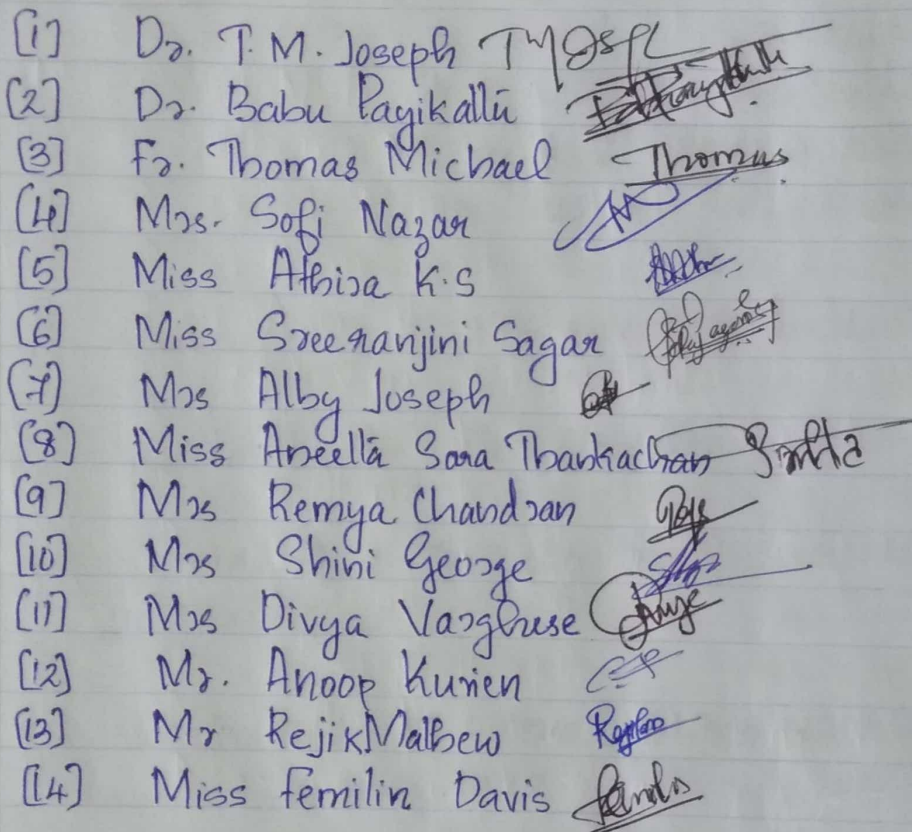 [1] Dr. T.M. Joseph TMJoseph
[2] Dr. Babu Payikallu
[3] Fr. Thomas Michael Thomas
[4] Mrs. Sofi Nazar
[5] Miss Athira K.S
[6] Miss Sreeranjini Sagar
[7] Mrs Alby Joseph
[8] Miss Aneella Sara Thankachan
[9] Mrs Remya Chandran
[10] Mrs Shini George
[11] Mrs Divya Varghese
[12] Mr. Anoop Kurien
[13] Mr Rejik Mathew
[14] Miss Femilin Davis